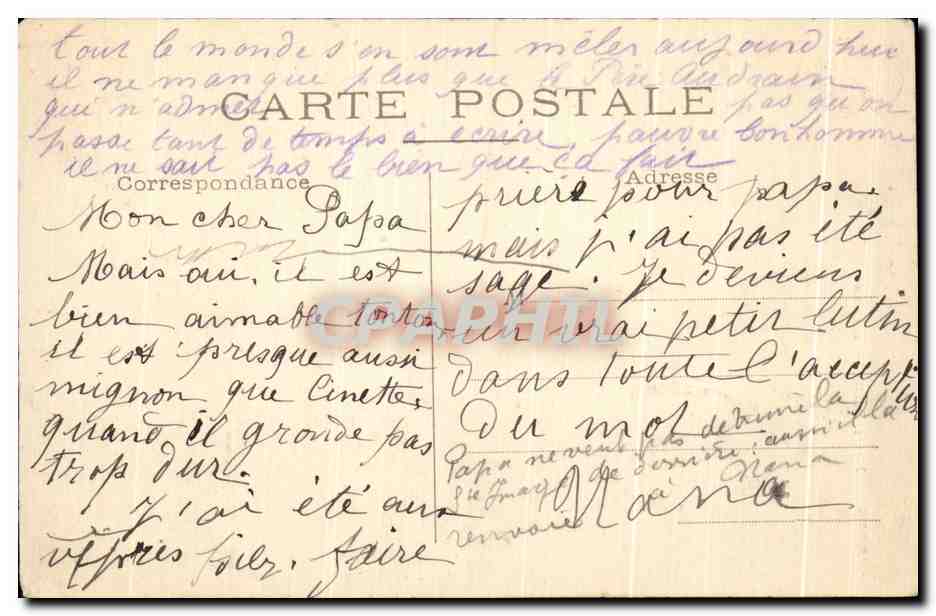 tout le monde s'en sont mêler aujourd'hui
il ne manque plus que le Père Audrain
qui n'admet pas qu'on
CARTE POSTALE
passe tant de temps à écrire, pauvre bonhomme
il ne sait pas le bien que ça fait
Correspondance
Adresse
Mon cher Papa
Mais oui, il est
bien aimable tonton
il est presque aussi
mignon que Cinette,
quand il gronde pas
trop dur.
J'ai été aux
vêpres hier. faire
prière pour papa.
mais j'ai pas été
sage. Je deviens
un vrai petit lutin
dans toute l'acception
du mot
Nana
Papa ne veut pas de la
Ste de derrière, aussi il la
renvoie à Nana
CPAPHIL